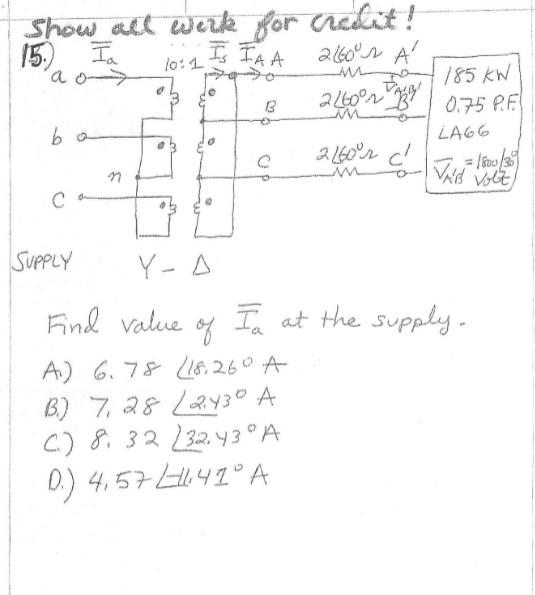 Show all work for credit!
15.) Ia 10:1 Is IAA 2∠60°Ω A'
a
B 2∠60°Ω VA'B' B'
b
C 2∠60°Ω C'
n
c
185 KW
0.75 P.F.
LAGG
VA'B' = 1800∠30°
Volt
SUPPLY Y - Δ
Find value of Ia at the supply.
A.) 6.78 ∠18.26° A
B.) 7.28 ∠2.43° A
C.) 8.32 ∠32.43° A
D.) 4.57 ∠-11.41° A